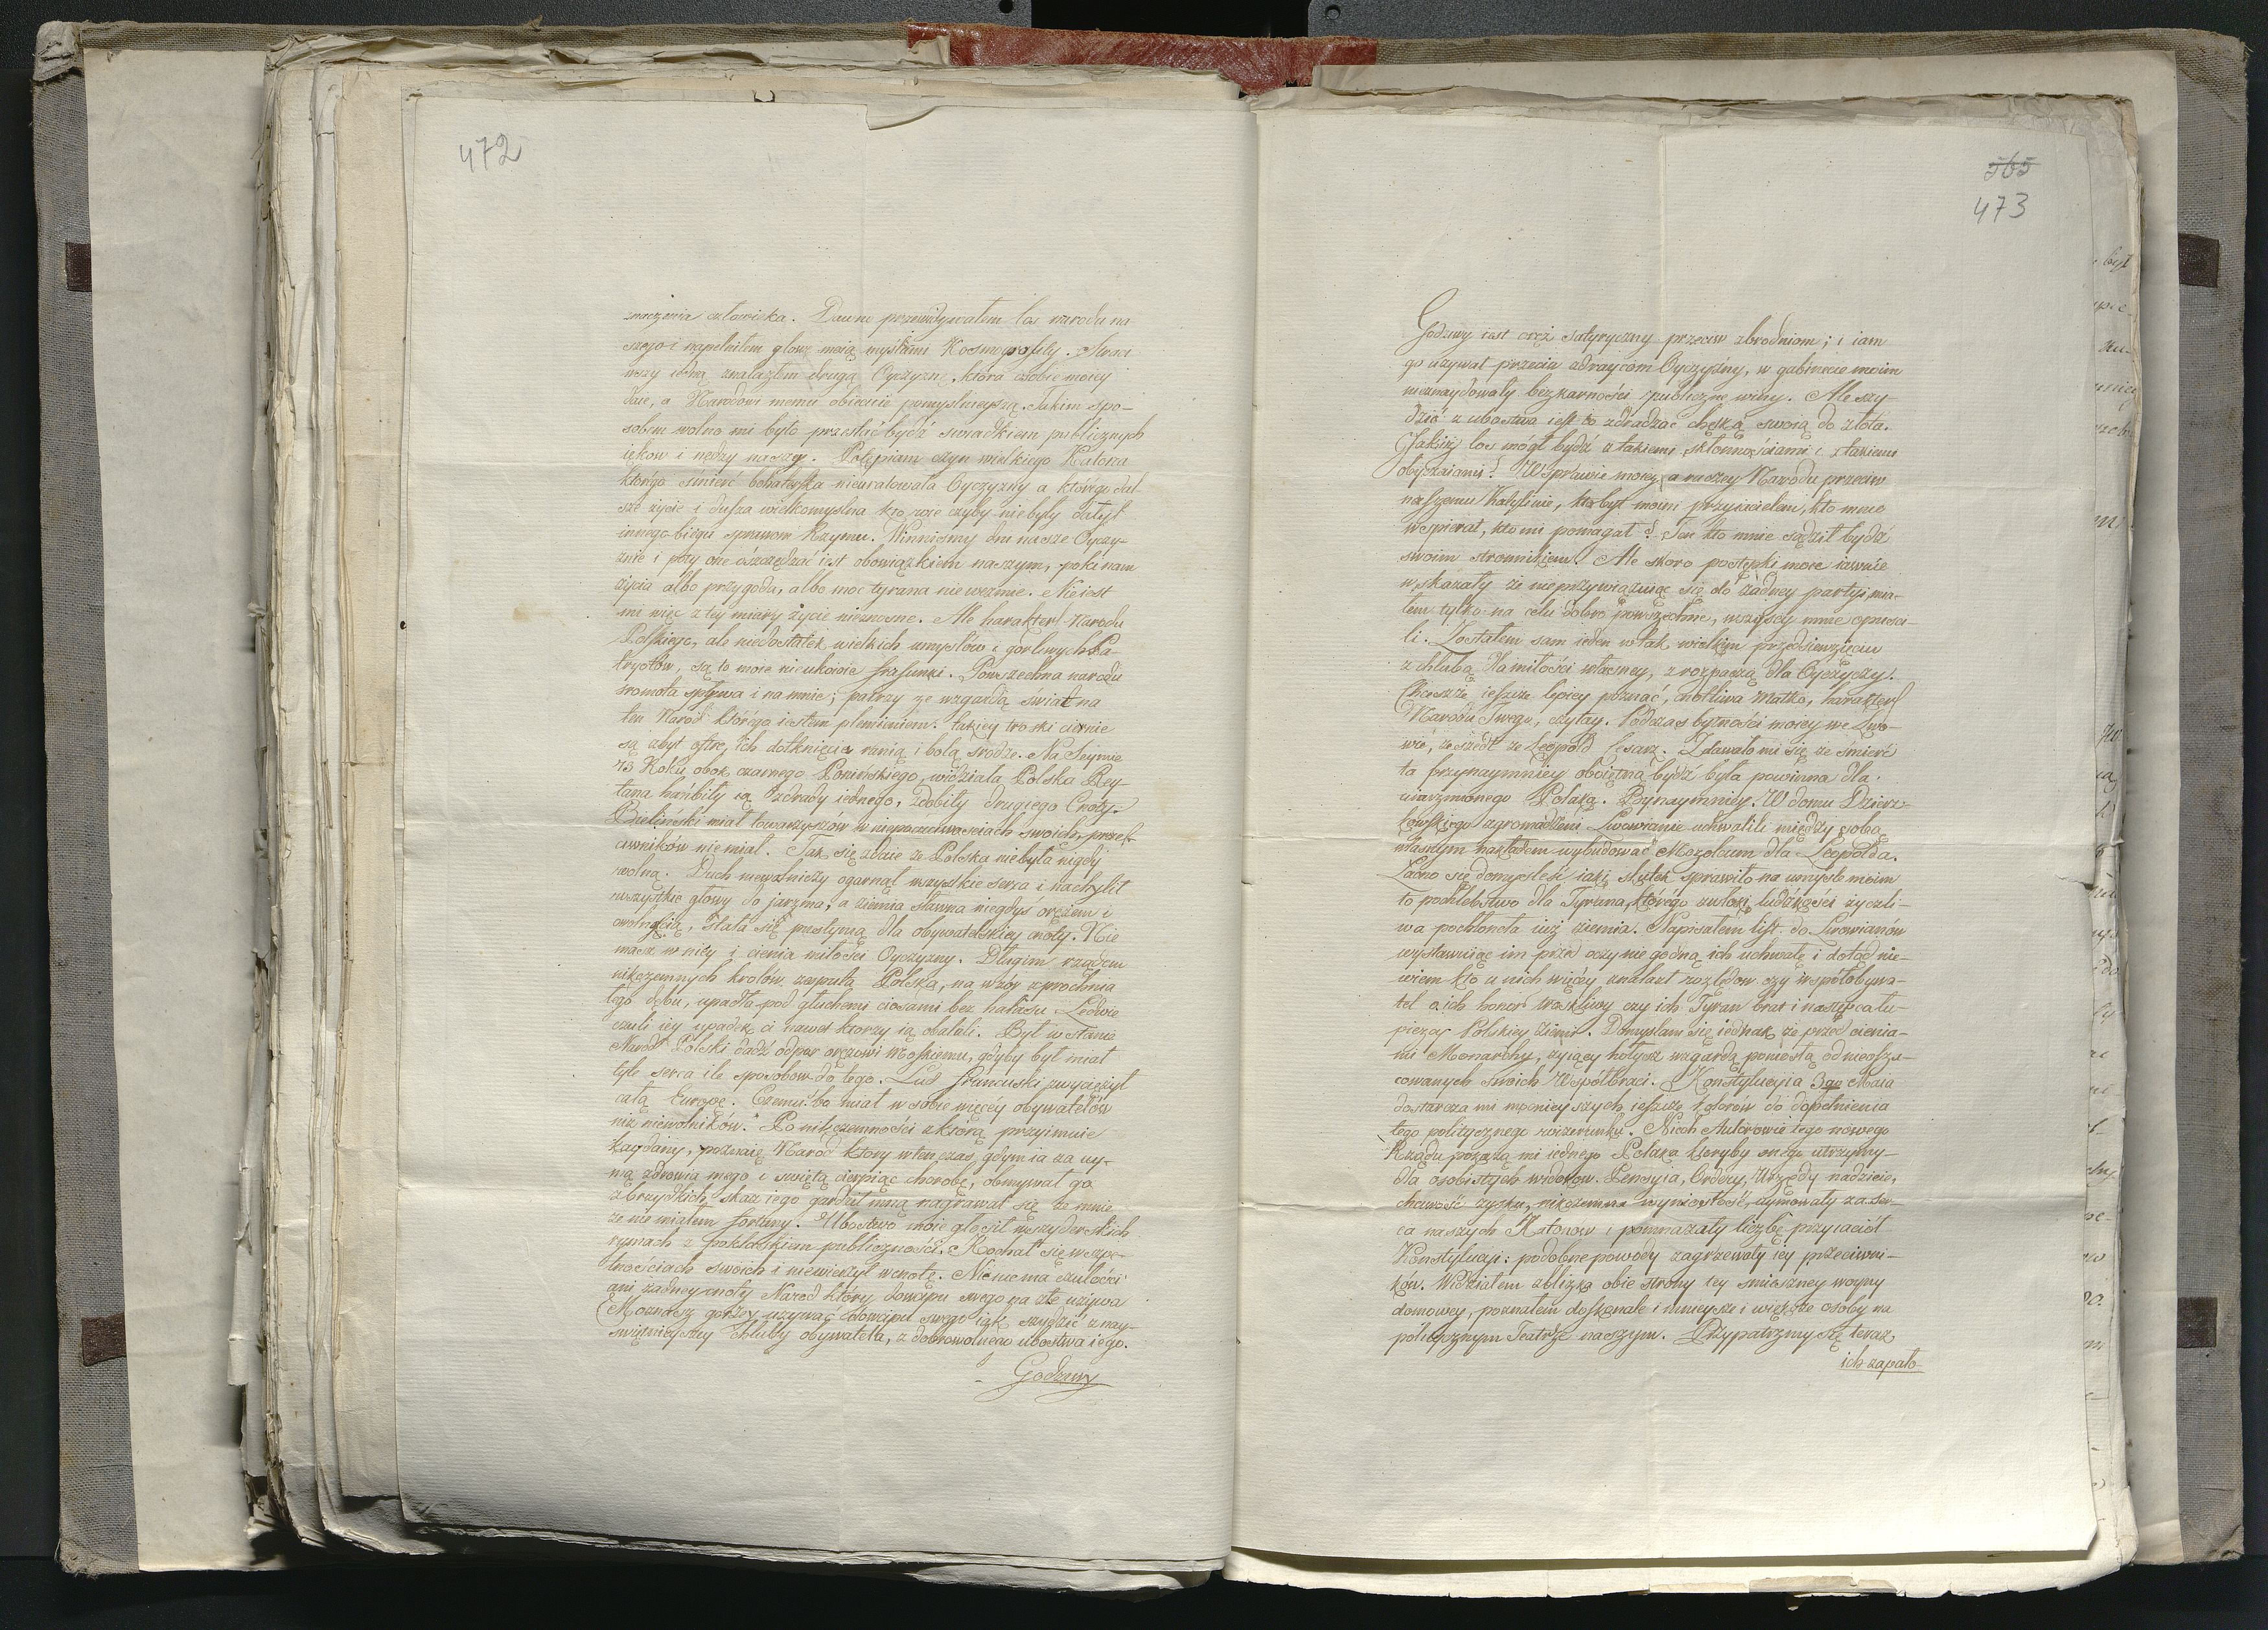 472
znaczenia człowieka. Dawno przewidywałem los narodu na-
szego i napełniłem głowę moią myślami Kosmopolity. Straci
wszy iedną znalazłem drugą Oyczyznę, która czobie moiey
daie, a Narodowi memu obiecuie pomyślnieyszą. Takim spo-
sobem wolno mi było przestać bydź swiadkiem publicznych
ięków i nędzy naszey. Potępiam czyn wielkiego Katona
którégo śmierć bohatyrska nieuratowała Oyczyzny a którégo dal-
sze życie i dusza wielkomyślna kto wie czyby niebyły dałyt
innego biegu sprawom Rzymu. Winnismy dni nasze Oyczy-
znie i przy one oszczędzać iest obowiązkiem naszym, poki nam
życia albo przygoda, albo moc tyrana nie wezmie. Nie iest
mi więc z tey miary życie nieznosne. Ale harakter Narodu
Polskiego, ale niedostatek wielkich umysłów i gorliwych Pa-
tryotów, są to moie nieukoione frasunki. Powszechna narodu
sromota spływa i na mnie; patrzy ze wzgardą świat na
ten Naród którégo iestem plemieniem. takiey troski ciernie
są zbyt ostre, ich dotknięcia ranią i bolą srodze. Na Seymie
73 Roku obok czarnego Ponińskiego, widziała Polska Rey-
tana hańbiły ią zdrady iednego, zdobiły drugiego Cnoty.
Puliński miał towarzyszów w niepoczciwościach swoich, przek-
ciwników nie miał. Tak się zdaie że Polska niebyła nigdy
wolną. Duch niewolniczy ogarnął wszystkie serca i nachylił
wszystkie głowy do jarzma, a ziemia sławna niegdyś orężem i
wolnością, stała się pustynią dla obywatelskiey cnoty. Nie
masz w niey i cienia miłości Oyczyzny. Długim rządem
nikczemnych krolów zepsuta Polska, na wzór zprochnia
łego dębu, upadła pod głuchemi ciosami bez hałasu. Ledwie
czuli iey upadek ci nawet ktorzy ią obalali. Był w stanie
Naród Polski dadź odpor orężowi Moskiemu, gdyby był miał
tyle serca ile sposobow do tego. Lud francuski zwyciężył
całą Europę. Czemu? bo miał w sobie więcéy obywatelów
niż niewolników. Po nikczemności z którą przyimuie
kaydany, poznaię Naród ktory wtenczas, gdym ia za uy-
mą zdrowia mego i swiętą cierpiąc chorobę, obmywał go
z brzydkich skaz iego gardził mną nagrawał się ze mnie
że nie miałem fortuny. Ubostwo moie głosił w szyderskich
rymach z poklaskiem publiczności. Kochał się w szpe-
tnościach swoich i niewierzył w cnotę. Nie ma czułości
ani żadney cnoty Narod który dowcipu swego na złe używa
Możnasz gorzey używać dowcipu swego iak szydzić z nay-
swiętszey chluby obywatela, z dobrowolnego ubostwa iego.
Godziwy
565
473
Godziwy iest oręż satyryczny przeciw zbrodniom; i iam
go używał przeciw zdraycom Oyczyzny, w gabinecie moim
nieznaydowały bezkarności publiczne winy. Ale szy-
dzić z ubostwa iest to zdradzać chętką swoią do złota.
Jakiż los mógł bydź z takiemi skłonnościami i z takiemi
obyczaiami? W sprawie moiey, a raczey Narodu przeciw
naszemu Katylinie, kto był moim przyiacielem, kto mnie
wspierał, kto mi pomagał? Ten kto mnie sądził bydź
swoim stronnikiem. Ale skoro postępki moie iawnie
wskazały że nieprzywięzuiąc się do żadney partyi, mia-
łem tylko na celu dobro powszechne, wszyscy mnie opuści-
li. Zostałem sam ieden w tak wielkim przedsiewzięciu
z chlubą dla miłości własney, z rozpaczą dla Oyczyzny.
Chcesz że ieszcze lepiey poznać, cnotliwa matko, harakter
Narodu Twego, czytay. Podczas bytności moiey we Lwo-
wie, zeszedł ze Leopold Cesarz. Zdawało mi się że śmierć
ta przynaymniey oboiętną bydź była powinna dla
uiarzmionego Polaka. Bynaymniey. W domu Dzierz-
kowskiego zgromadzeni Lwowianie uchwalili między sobą
własnym nakładem wybudować Mozoleum dla Leopolda.
Łacno się domyśleść iaki skutek sprawiło na umyśle moim
to pochlebstwo dla Tyrana, którégo zwłoki ludzkości życzli-
wa pochłonęła iuż ziemia. Napisałem list do Lwowianów
wystawuiąc im przed oczy niegodną ich uchwałę i dotąd nie-
wiem kto u nich więcéy znalazł względow czy współobywa-
tel o ich honor troskliwy czy ich Tyran brat i następca łu-
pieżcy Polskiey ziemi. Domyślam się iednak że przed cienia-
mi Monarchy, żyiący hołysz wzgardą poniosłą od nieosza-
cowanych swoich Współbraci. Konstytucyia 3go Maia
dostarcza mi mocnieyszych ieszcze kolorów do dopełnienia
tego politycznego wizerunku. Niech Autorowie tego nowego
Rządu pokażą mi iednego Polaka któryby onego utrzymy-
dla osobistych widoków. Pensyia, Ordery, Urzędy nadzieie,
chciwość zysku, nikczemna wyniosłość, zymowały za ser-
ca naszych Katonow i pomnażały liczbę przyiaciół
Konstytucyi: podobne powody zagrzewały iey przeciwni-
ków. Widziałem zblizka obie strony tey smieszney woyny
domowey, poznałem doskonale i mnieysze i większe osoby na
politycznym Teatrze naszym. Przypatrzmy się teraz
ich zapało-